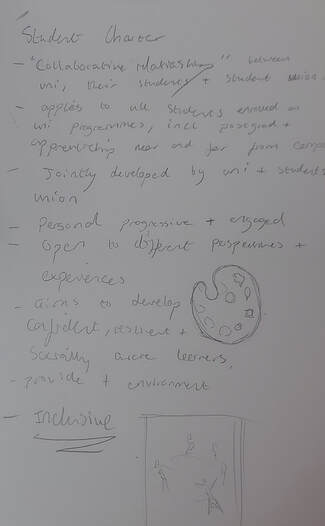 Student Charter
- "Collaborative relationship" between
uni, their students + student union
- applies to all students enrolled on
uni programmes, incl postgrad +
apprenticeship near and far from campus
- Jointly developed by uni + students
union
- Personal progressive + engaged
- Open to different perspectives +
experiences
- aims to develop
confident, resilient +
socially aware learners,
- provide + environment
- Inclusive